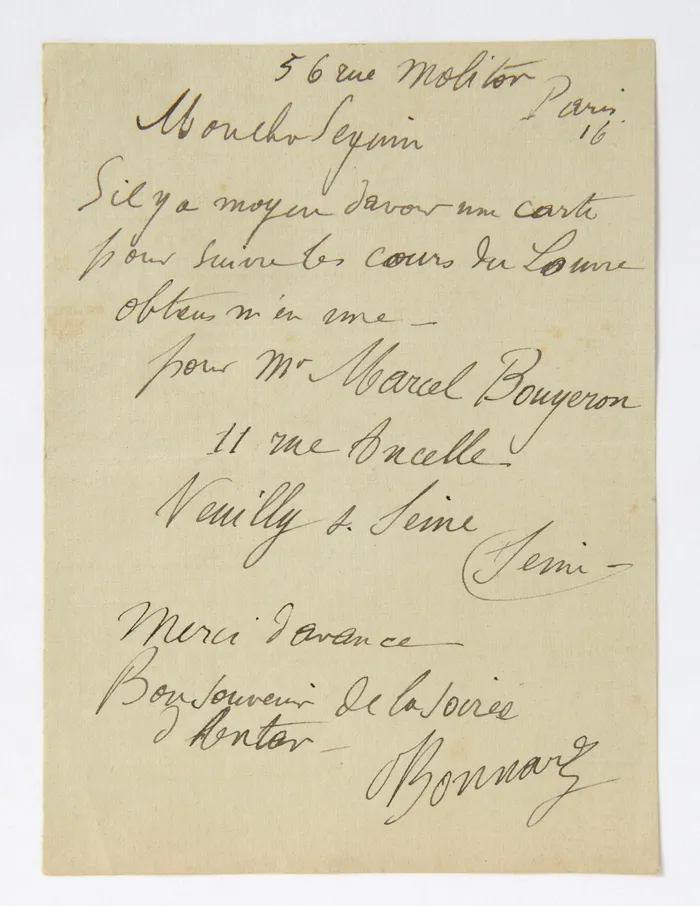 56 rue Molitor
Paris
16
Mon cher Seguin
S'il y a moyen d'avoir une carte
pour suivre les cours du Louvre
obtiens m'en une —
pour Mr Marcel Bouyeron
11 rue Ancelle
Neuilly s. Seine
(Seine —
Merci d'avance —
Bon souvenir de la soirée
d'Antar —
Bonnard